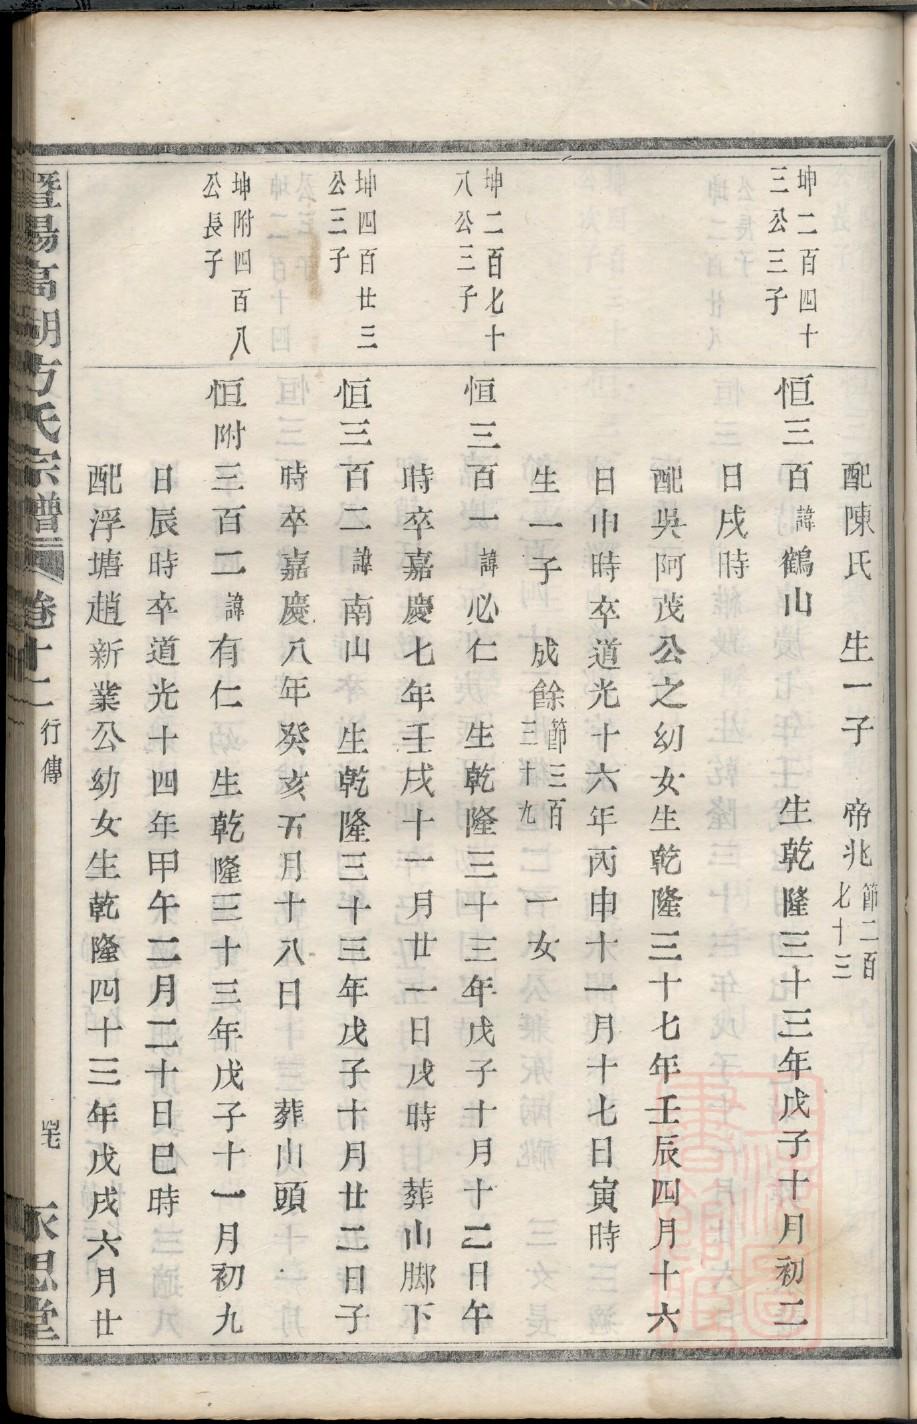 配陳氏 生一子 帝兆節二百七十三
坤二百四十三公三子
恒三百諱鶴山 生乾隆三十三年戊子十月初二
日戌時
配吳阿茂公之幼女生乾隆三十七年壬辰四月十六
日巾時卒道光十六年丙申十一月十七日寅時
生一子 成餘節三百三十九 一女
坤二百七十八公三子
恒三百一諱必仁 生乾隆三十三年戊子十月十二日午
時卒嘉慶七年壬戌十一月廿一日戌時 葬山腳下
坤四百廿三公三子
恒三百二諱南山 生乾隆三十三年戊子十月廿二日子
時卒嘉慶八年癸亥五月十八日 葬山頭
坤附四百八公長子
恒附三百二諱有仁 生乾隆三十三年戊子十一月初九
日辰時卒道光十四年甲午二月二十日巳時
配浮塘趙新業公幼女生乾隆四十三年戊戌六月廿
暨陽高湖方氏宗譜 卷十二 行傳 永思堂